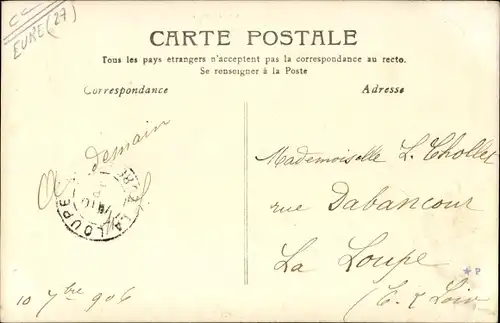 CC
EURE (27)
CARTE POSTALE
Tous les pays étrangers n'acceptent pas la correspondance au recto.
Se renseigner à la Poste
Correspondance
Adresse
A demain
LA LOUPE
10 7bre 906
Mademoiselle L. Chollet
rue Dabancour
La Loupe
(E. & Loir
P